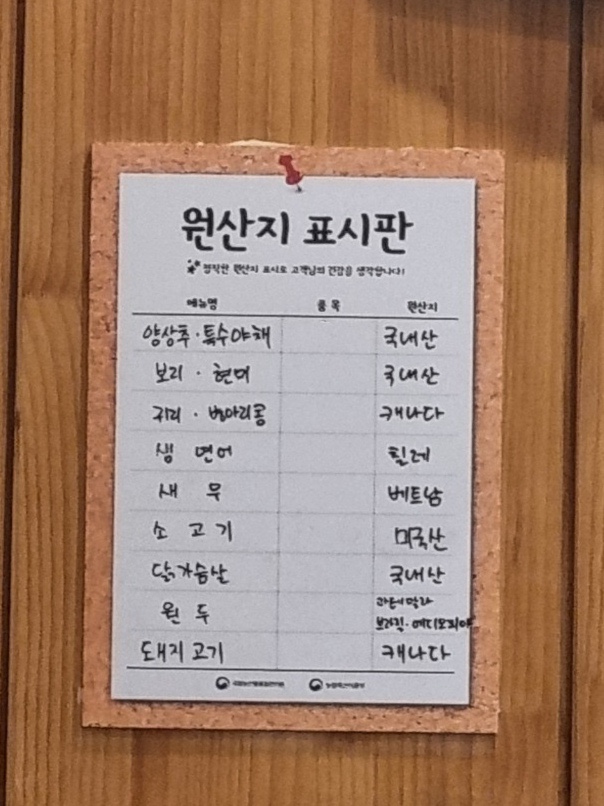 원산지 표시판
정직한 원산지 표시로 고객님의 건강을 생각합니다!
메뉴명 품목 원산지
양상추·특수야채 국내산
보리 · 현미 국내산
귀리 · 병아리콩 캐나다
생 연어 칠레
새우 베트남
소고기 미국산
닭가슴살 국내산
원두 과테말라
브라질·에티오피아
돼지고기 캐나다
국립농산물품질관리원 농림축산식품부